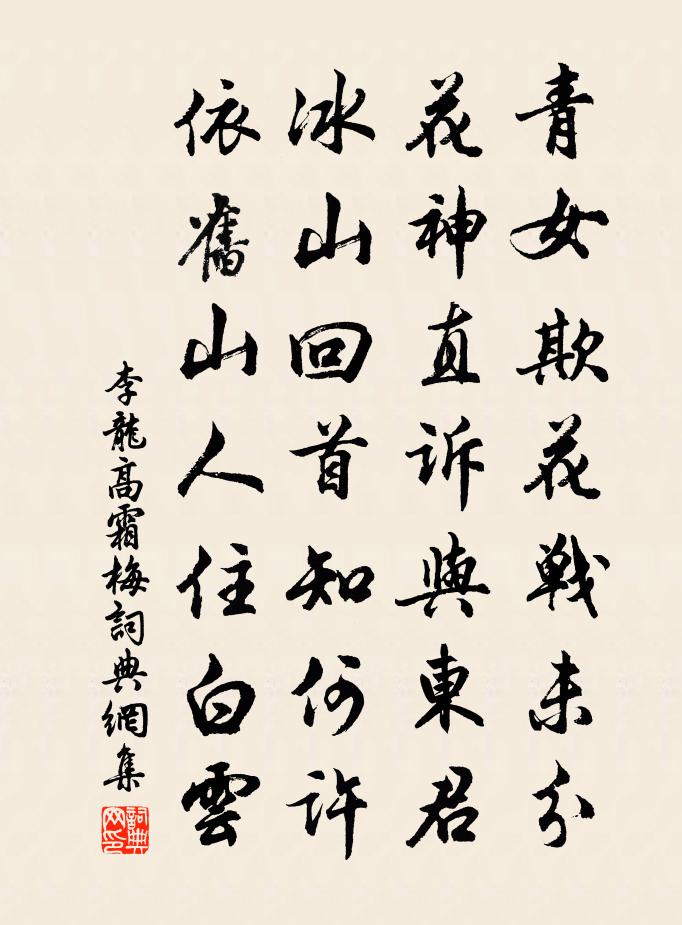 青女欺花戰未分
花神直訴與東君
冰山回首知何許
依舊山人住白雲
李龍高霜梅詞典網集
詞典網印